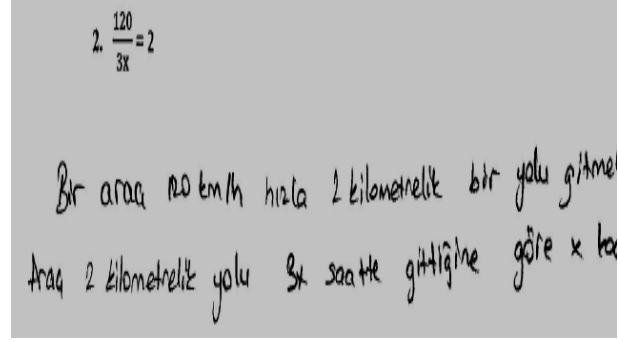 2. 120/3x = 2
Bir araç 120 km/h hızla 2 kilometrelik bir yolu
Araç 2 kilometrelik yolu 3x saatte gittiğine göre x